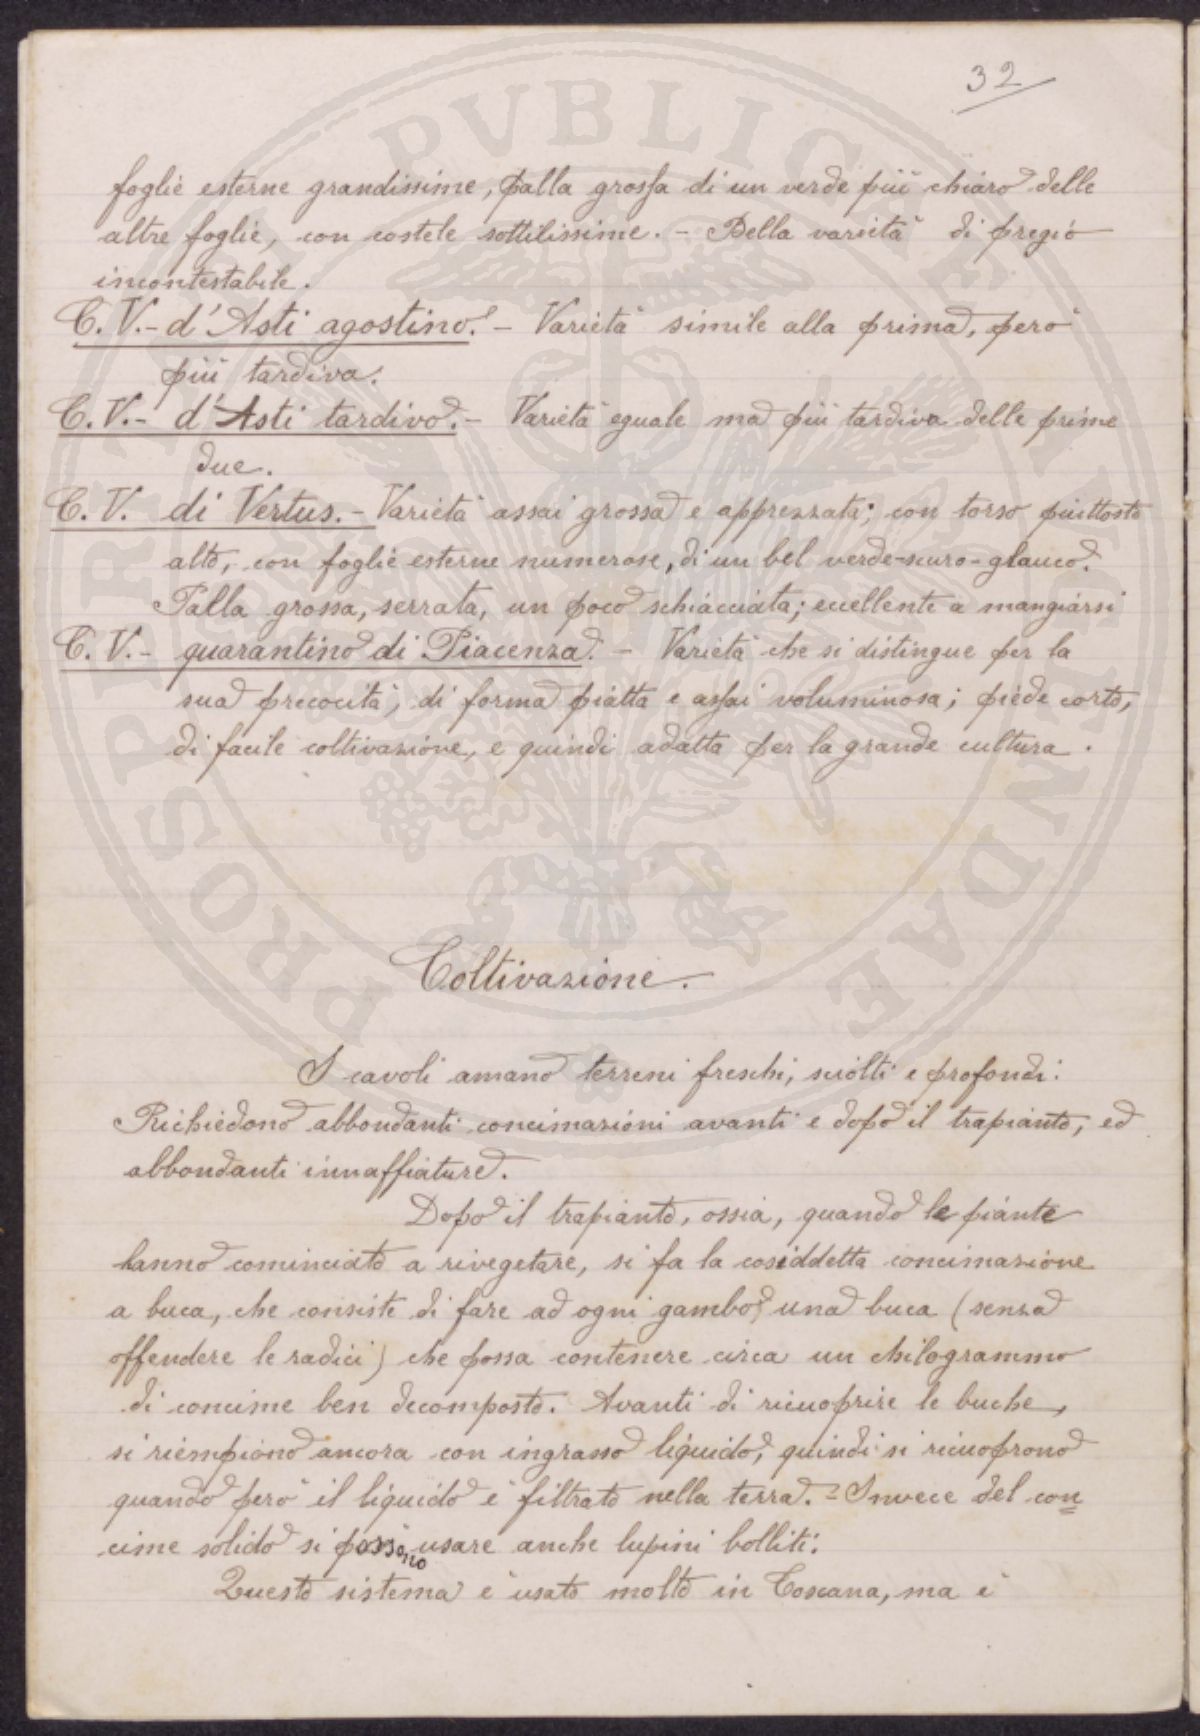 32
foglie esterne grandissime, palla grossa di un verde più chiaro delle
altre foglie, con costele sottilissime. - Bella varietà di pregio
incontestabile.
C. V. - d'Asti agostino. - Varietà simile alla prima, però
più tardiva.
C. V. - d'Asti tardivo. - Varietà eguale ma più tardiva delle prime
due.
C. V. di Vertus. - Varietà assai grossa e apprezzata; con torso piuttosto
alto, con foglie esterne numerose, di un bel verde-scuro-glauco.
Palla grossa, serrata, un poco schiacciata; eccellente a mangiarsi
C. V. - quarantino di Piacenza. - Varietà che si distingue per la
sua precocità, di forma piatta e assai voluminosa; piede corto,
di facile coltivazione, e quindi adatta per la grande cultura.
Coltivazione.
I cavoli amano terreni freschi, sciolti e profondi.
Richiedono abbondanti concimazioni avanti e dopo il trapianto, ed
abbondanti innaffiature.
Dopo il trapianto, ossia, quando le piante
hanno cominciato a rivegetare, si fa la cosiddetta concimazione
a buca, che consiste di fare ad ogni gambo una buca (senza
offendere le radici) che possa contenere circa un chilogrammo
di concime ben decomposto. Avanti di ricuoprire le buche,
si riempiono ancora con ingrasso liquido, quindi si ricuoprono
quando però il liquido è filtrato nella terra. - Invece del con=
cime solido si possono usare anche lupini bolliti.
Questo sistema è usato molto in Toscana, ma è
PROSPERITATI PVBLICAE AVGENDAE